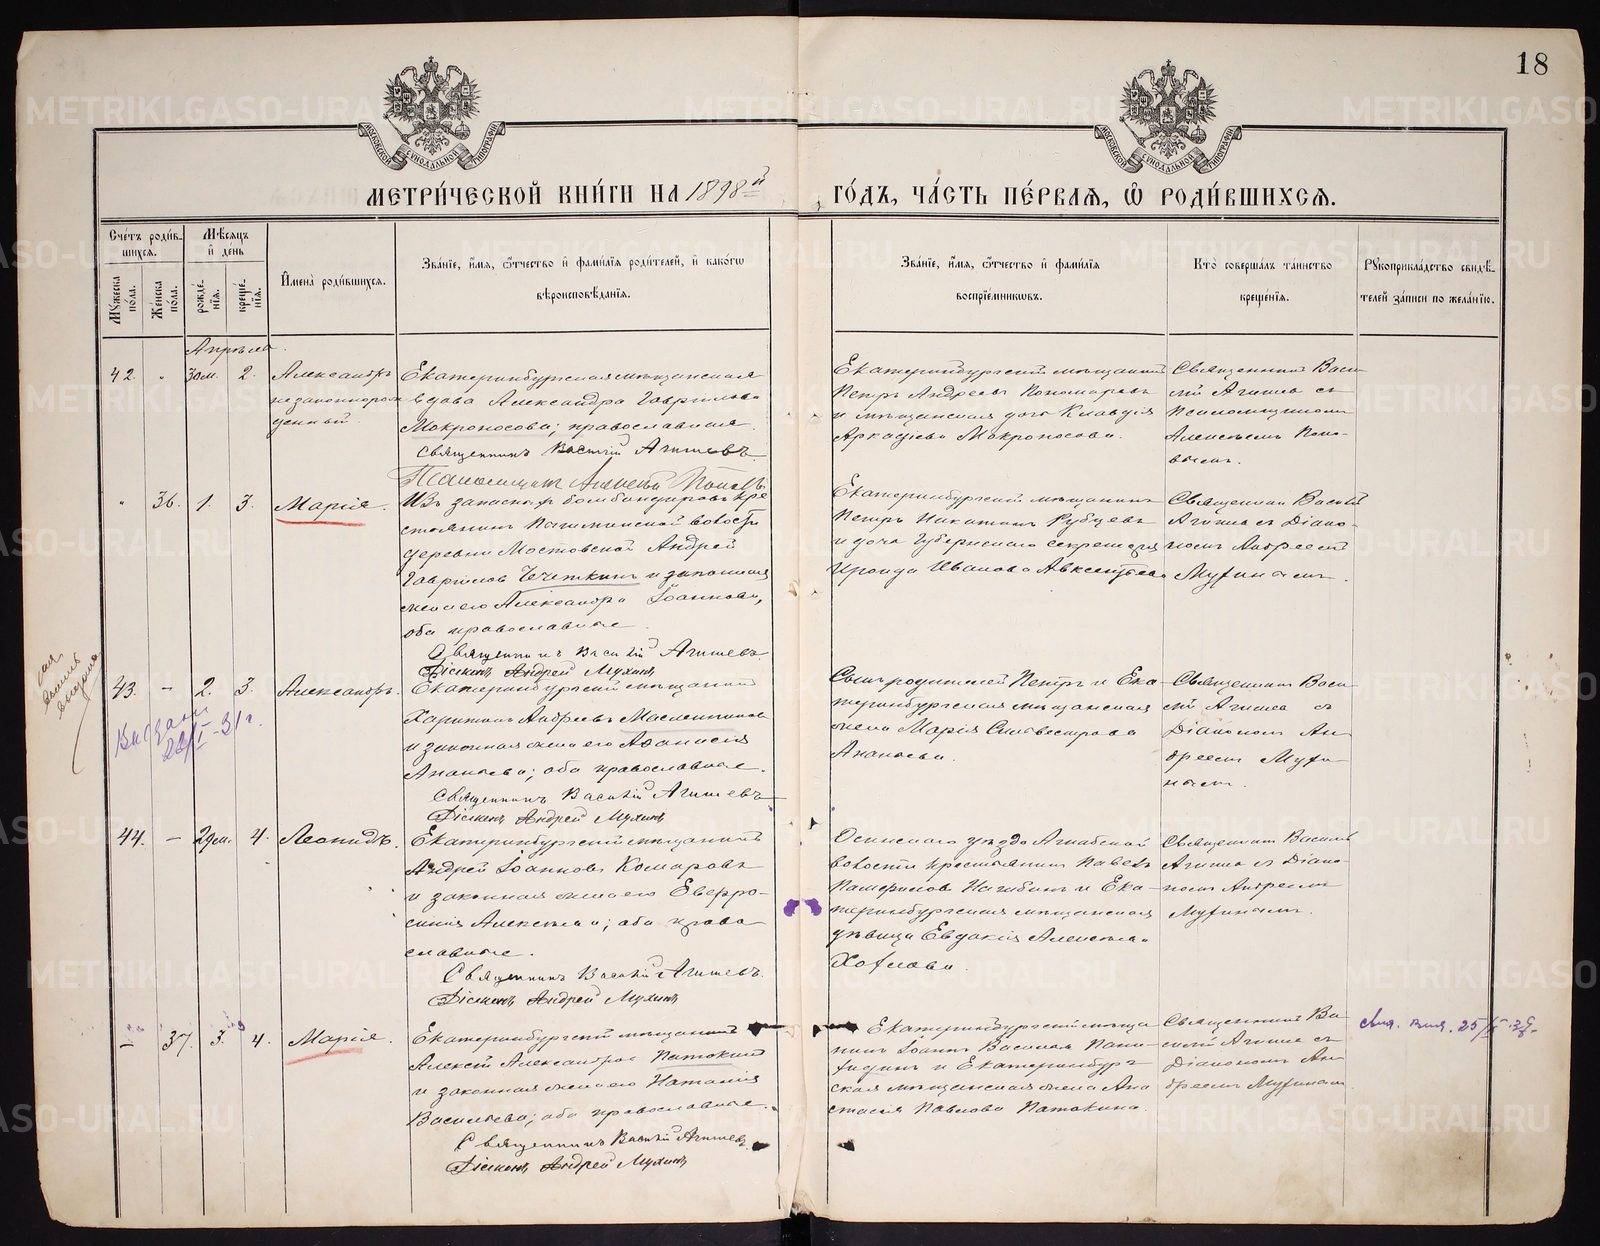 18
МЕТРИ́ЧЕСКОЙ КНИ́ГИ НА 1898й
ГО́ДЪ, ЧА́СТЬ ПЕ́РВАЯ, Ѡ҆ РОДИ́ВШИХСЯ.
Сче́тъ роди́вшихся.
Мѣсяцъ и҆ де́нь
Мꙋжеска по́ла.
Же́нска по́ла.
рожде́нїя.
креще́нїя.
И҆мена̀ роди́вшихся.
Зва́нїе, и҆мя, ѻ҆́тчество и҆ фами́лїя роди́телей, и҆ како́гѡ
вѣроисповѣ́данїя.
Зва́нїе, и҆́мя, ѻ҆́тчество и҆ фами́лїя
воспрїе́мникѡвъ.
Кто̀ соверша́лъ та́инство
креще́нїя.
Рꙋкоприкла́дство свидѣ́-
телей за́писи по жела́нїю.
Апрѣля
42. " 30м. 2. Александръ
незаконнорож
денный
Екатеринбургская мѣщанская
вдова Александра Гаврилова
Мокроносова; православная.
Священникъ Василій Агишевъ
Псаломщикъ Алексѣй Поповъ
Екатеринбургскій мѣщанинъ
Петръ Андреевъ Пономаревъ
и мѣщанская дочь Клавдія
Аркадіева Мокроносова.
Священникъ Васи-
лій Агишевъ съ
Псаломщикомъ
Алексѣемъ Попо-
вымъ.
" 36. 1. 3. Марія.
Изъ запаса
бомбандировъ кре
стьянинъ
волости
деревни Мостовской Андрей
Гавриловъ Чечеткинъ и законная
жена его Александра Іоаннова,
оба православные.
Священникъ Василій Агишевъ
Діаконъ Андрей Мухинъ
Екатеринбургскій мѣщанинъ
Петръ
Рубцевъ
и дочь Губернскаго секретаря
Ираида Иванова Авксентьева
Священникъ Василій
Агишевъ съ Діако-
номъ Андреемъ
Мухинымъ.
43. – 2. 3. Александръ.
22/I-31г.
Екатеринбургскій мѣщанинъ
Харитонъ Андреевъ Масленниковъ
и законная жена его Аѳанасія
Ананьева; оба православные.
Священникъ Василій Агишевъ
Діаконъ Андрей Мухинъ
Сынъ родителей Петръ и Ека-
теринбургская мѣщанская
жена Марія Сильвестрова
Ананьева.
Священникъ Васи-
лій Агишевъ съ
Діакономъ Ан-
дреемъ Мухи-
нымъ.
44. – 29м. 4. Леонидъ.
Екатеринбургскій мѣщанинъ
Андрей Іоанновъ Комаровъ
и законная жена его Евфро-
синія Алексѣева; оба право
славные.
Священникъ Василій Агишевъ.
Діаконъ Андрей Мухинъ
Осинскаго уѣзда
волости крестьянинъ Павелъ
Нагибинъ и Ека-
теринбургская мѣщанская
дѣвица Евдокія Алексѣева
Хохлова.
Священникъ Василій
Агишевъ съ Діако-
номъ Андреемъ
Мухинымъ.
– 37. 3. 4. Марія.
Екатеринбургскій мѣщанинъ
Алексѣй Александровъ Патокинъ
и законная жена его Наталія
Васильева; оба православные.
Священникъ Василій Агишевъ
Діаконъ Андрей Мухинъ
Екатеринбургскій мѣща-
нинъ Іоаннъ Васильевъ
и Екатеринбург-
ская мѣщанская жена Ана
стасія Павлова Патокина.
Священникъ Ва-
силій Агишевъ съ
Діакономъ Ан-
дреемъ Мухинымъ